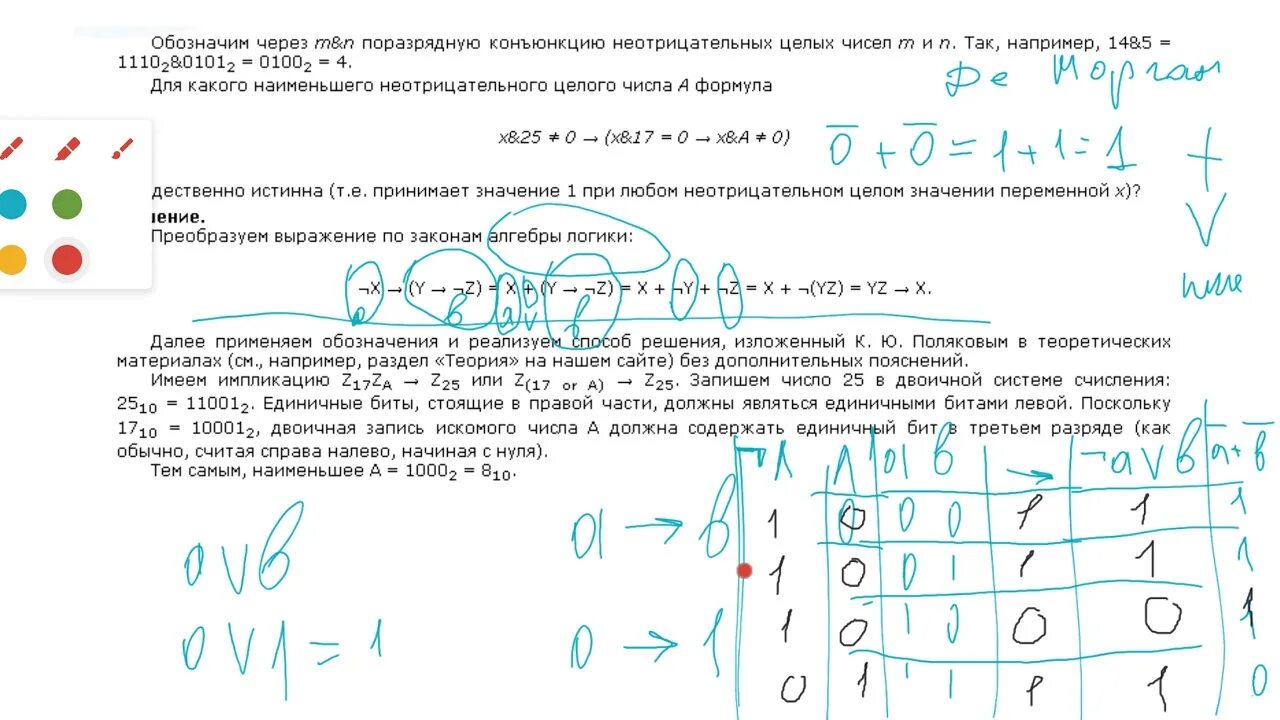 Обозначим через m&n поразрядную конъюнкцию неотрицательных целых чисел m и n. Так, например, 14&5 =
1110₂&0101₂ = 0100₂ = 4.
Де Морган
Для какого наименьшего неотрицательного целого числа А формула
x&25 ≠ 0 → (x&17 = 0 → x&A ≠ 0)
0̅ + 0̅ = 1 + 1 = 1
+
дественно истинна (т.е. принимает значение 1 при любом неотрицательном целом значении переменной x)?
ение.
V
Преобразуем выражение по законам алгебры логики:
или
¬X → (Y → ¬Z) = X + (Y → ¬Z) = X + ¬Y + ¬Z = X + ¬(YZ) = YZ → X.
a в a V в
Далее применяем обозначения и реализуем способ решения, изложенный К. Ю. Поляковым в теоретических
материалах (см., например, раздел «Теория» на нашем сайте) без дополнительных пояснений.
Имеем импликацию Z₁₇Z_A → Z₂₅ или Z₍₁₇ or A₎ → Z₂₅. Запишем число 25 в двоичной системе счисления:
25₁₀ = 11001₂. Единичные биты, стоящие в правой части, должны являться единичными битами левой. Поскольку
17₁₀ = 10001₂, двоичная запись искомого числа А должна содержать единичный бит в третьем разряде (как
обычно, считая справа налево, начиная с нуля).
Тем самым, наименьшее А = 1000₂ = 8₁₀.
¬Λ Λ a в → ¬a V в a̅ + в̅
1 0 0 0 1 1 1
1 0 0 1 1 1 1
1 0 1 0 0 0 1
0 1 1 1 1 1 0
a V в
a → в
0 V 1 = 1
0 → 1